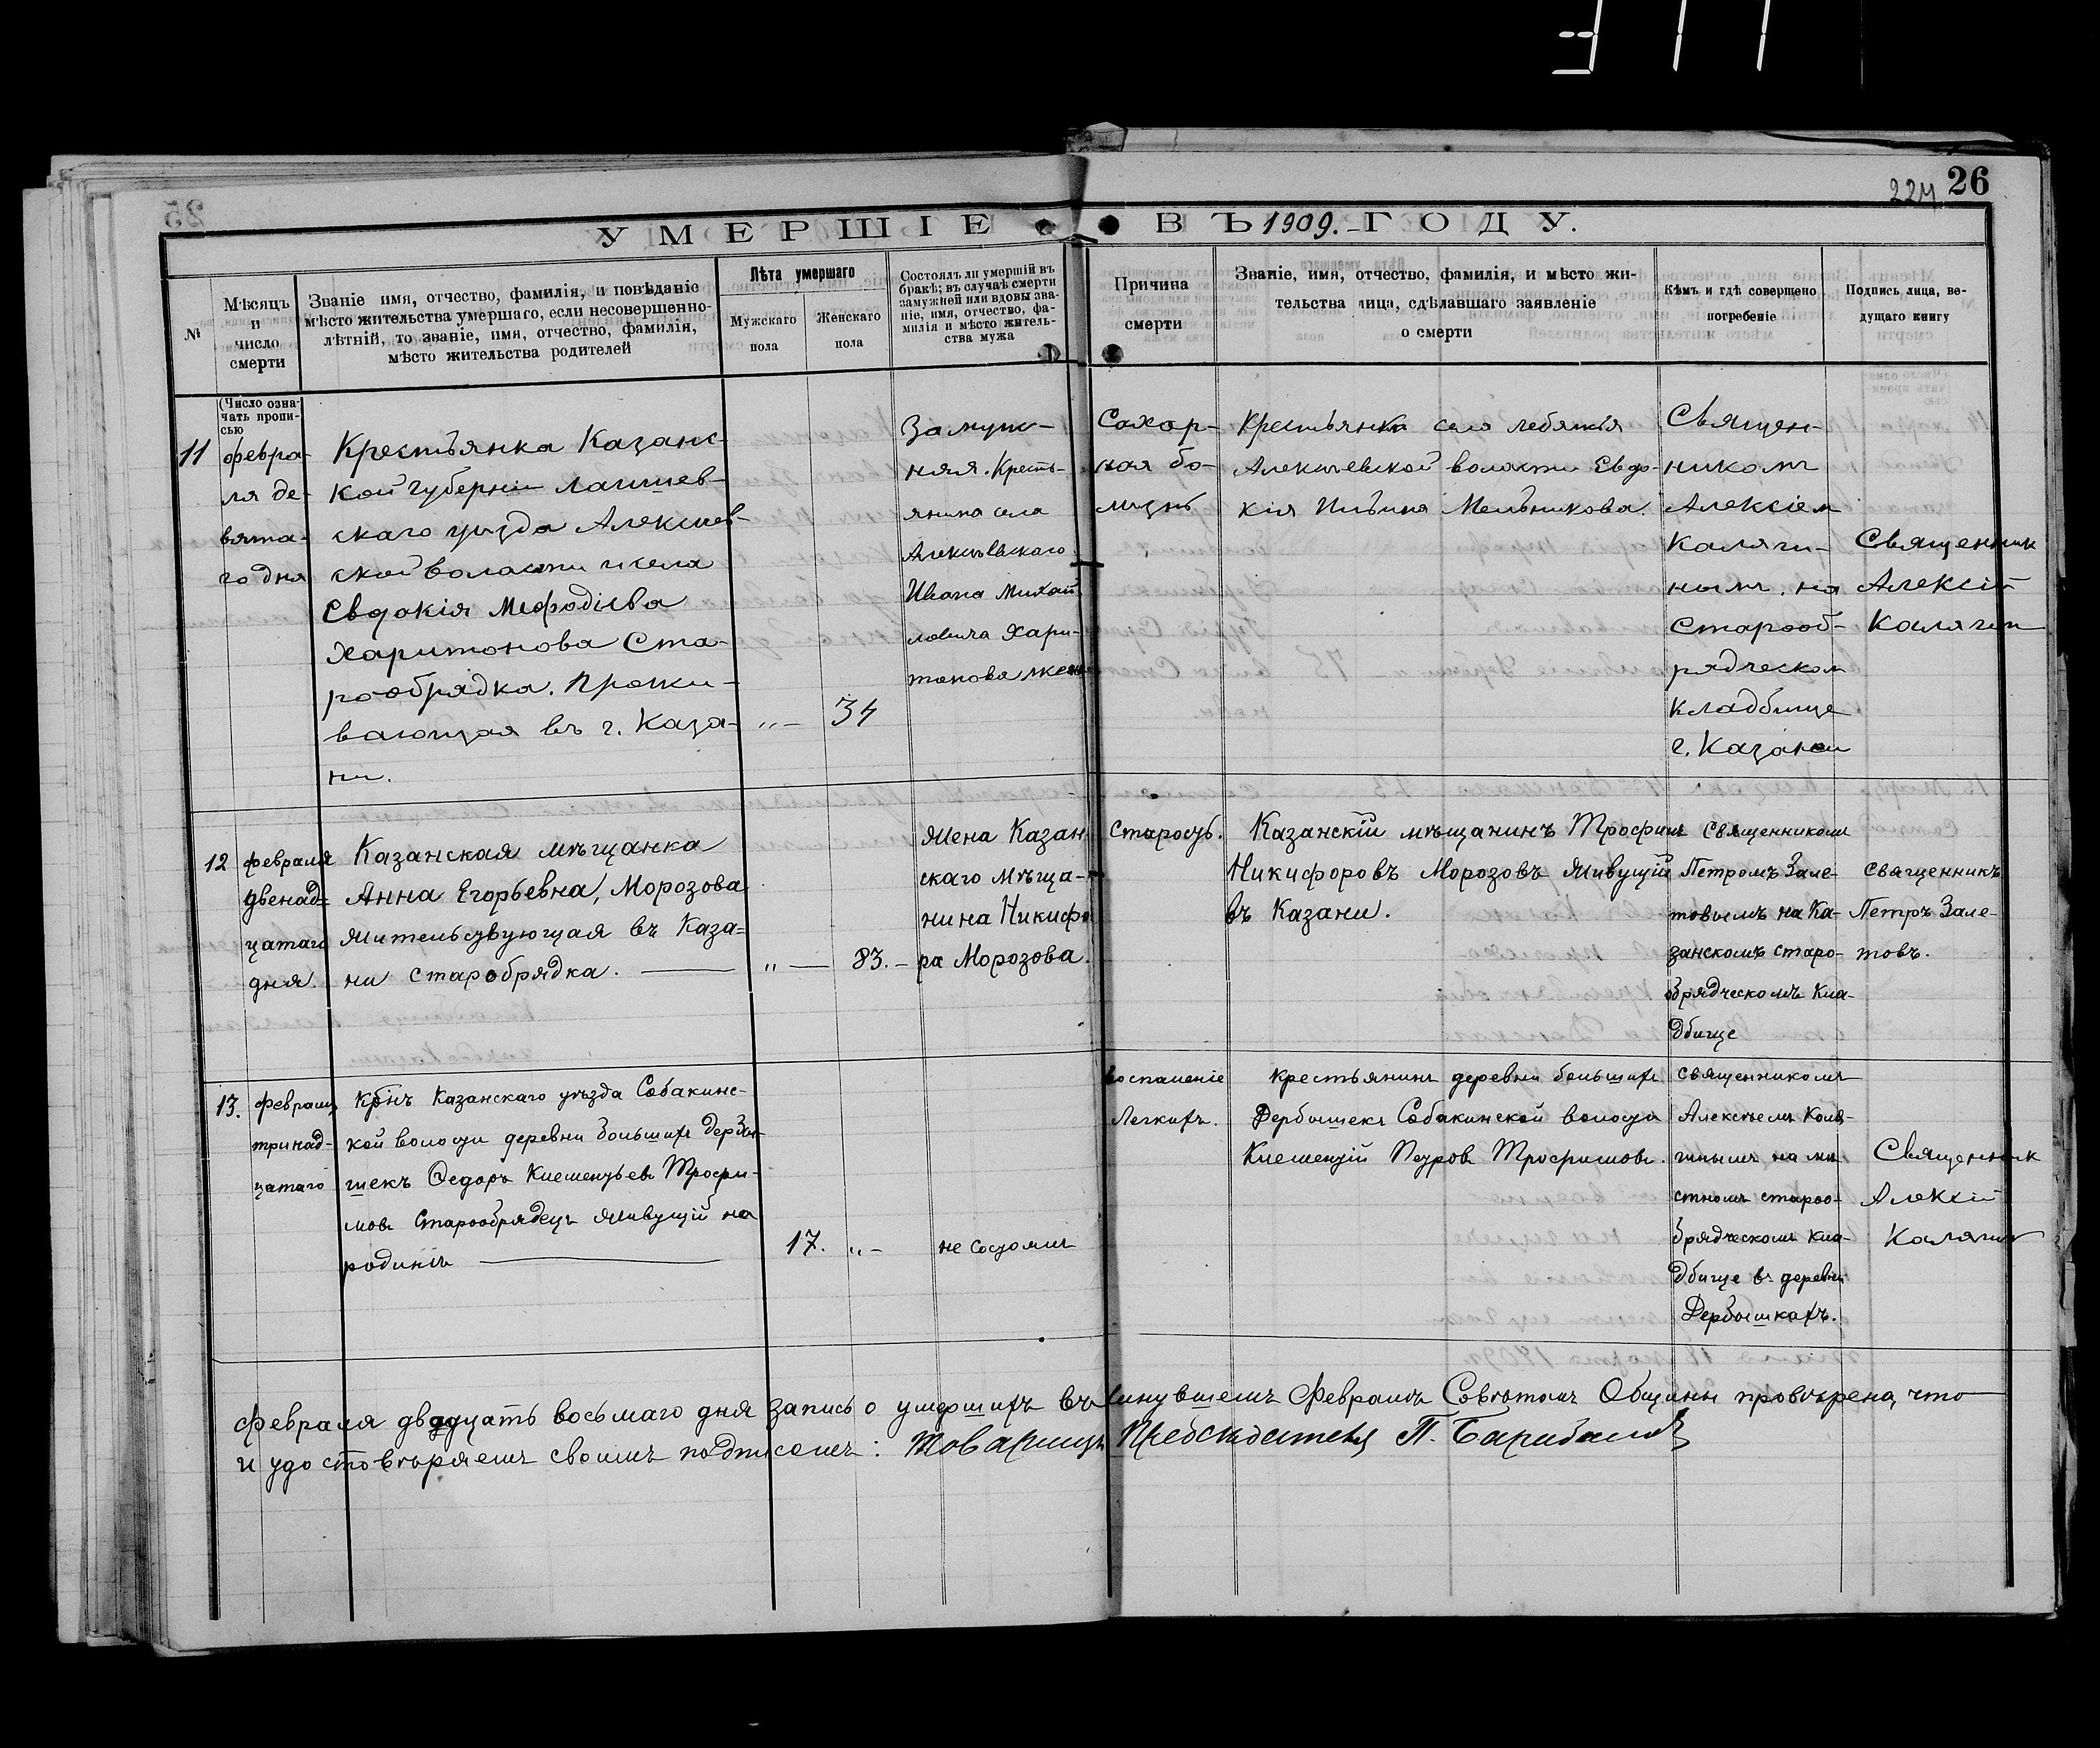 224 26
25
УМЕРШІЕ ВЪ 1909. ГОДУ.
№
Мѣсяцъ
и
число
смерти
Званіе имя, отчество, фамилія, и повѣданіе
мѣсто жительства умершаго, если несовершенно-
лѣтній, то званіе, имя, отчество, фамилія,
мѣсто жительства родителей
Лѣта умершаго
Мужскаго
пола
Женскаго
пола
Состоялъ ли умершій въ
бракѣ; въ случаѣ смерти
замужней или вдовы зва-
ніе, имя, отчество, фа-
милія и мѣсто житель-
ства мужа
Причина
смерти
Званіе, имя, отчество, фамилія, и мѣсто жи-
тельства лица, сдѣлавшаго заявленіе
о смерти
Кѣмъ и гдѣ совершено
погребеніе
Подпись лица, ве-
дущаго книгу
(Число озна-
чать пропи-
сью
11
февра-
ля де-
вята-
го дня
Крестьянка Казанс-
кой губерніи Лаишев-
скаго уѣзда Алексѣев-
ской волости и села
Евдокія Мефодіева
Харитонова Ста-
рообрядка. Прожи-
вающая въ г. Каза-
ни.
"—
34
Замуж-
няя. Кресть-
янина села
Алексѣевскаго
Ивана Михай
ловича Хари-
тонова жена
Сахар-
ная бо-
лѣзнь
Крестьянка села Лебяжья
Алексѣевской волости Евдо-
кія Ильина Мельникова.
Священ-
никомъ
Алексіем
Каляги-
нымъ. на
Старооб-
рядческом
кладбище
г. Казани
Священник
Алексій
Калягин
12
февраля
двенад=
цатаго
дня.
Казанская мѣщанка
Анна Егорьевна, Морозова
жительствующая въ Каза=
ни старобрядка.
"—
83.—
Жена Казан
скаго мѣща-
нина Никифо
ра Морозова.
Старость.
Казанскій мѣщанинъ Трофим
Никифоровъ Морозовъ живущій
въ Казани.
Священником
Петромъ Зале-
товымъ на Ка-
занскомъ старо-
обрядческомъ кла-
дбище
Священникъ
Петръ Зале-
товъ.
13.
февраля
тринад-
цатаго
Крнъ Казанскаго уѣзда Собакинс-
кой волости деревни большихъ Дербы-
шекъ Федоръ Клементьевъ Трофи-
мовъ Старообрядецъ живущій на
родинѣ
17.
"—
не состоялъ
воспаленіе
Легкихъ.
крестьянинъ деревни большихъ
Дербышекъ Собакинской волости
Клементій Петровъ Трофимовъ.
Священникомъ
Алексѣемъ Каля-
гинымъ на мѣ
стномъ староо-
брядческомъ кла-
дбище въ деревни
Дербышкахъ.
Священник
Алексій
Калягин
февраля двадцать восьмаго дня запись о умершихъ въ минувшемъ Февралѣ Совѣтомъ Общины провѣрена, что
и удостовѣряемъ своимъ подписомъ: Товарищъ Предсѣдателя П.